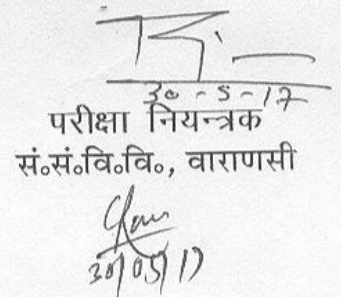 30-5-17
परीक्षा नियन्त्रक
सं॰सं॰वि॰वि॰, वाराणसी
30/05/17